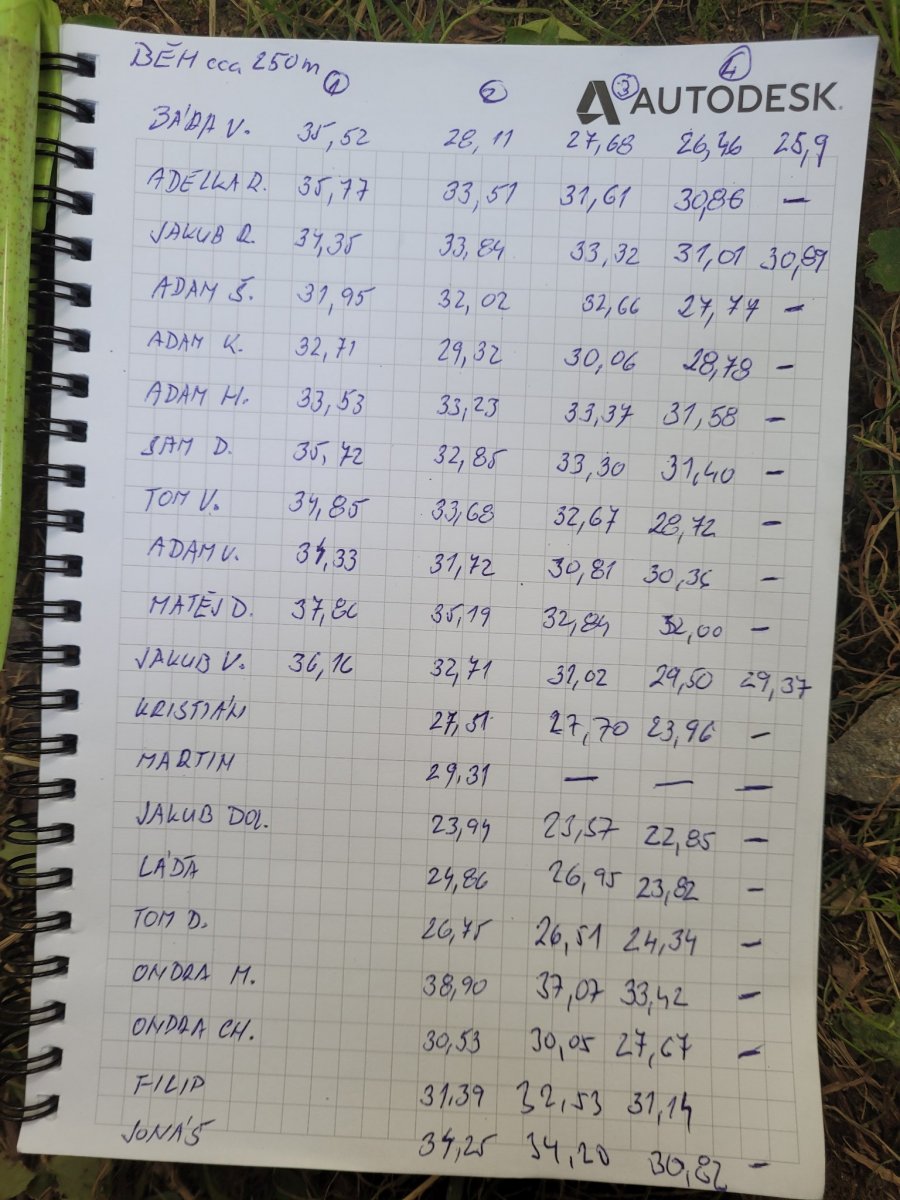 BĚH cca 250m
1 2 3 4
AUTODESK.
BÁĎA V. 35,52 28,11 27,68 26,46 25,9
ADÉLKA R. 35,77 33,51 31,61 30,86 —
JAKUB R. 34,35 33,84 33,32 31,01 30,89
ADAM Š. 31,95 32,02 32,66 27,77 —
ADAM K. 32,71 29,32 30,06 28,78 —
ADAM H. 33,53 33,23 33,37 31,58 —
SAM D. 35,72 32,85 33,30 31,40 —
TOM V. 34,85 33,68 32,67 28,72 —
ADAM V. 31,33 31,72 30,81 30,36 —
MATĚJ D. 37,86 35,19 32,84 32,00 —
JAKUB V. 36,16 32,71 31,02 29,50 29,37
KRISTIÁN 27,51 27,70 23,96 —
MARTIN 29,31 — — —
JAKUB DOL. 23,94 23,57 22,85 —
LÁĎA 24,86 26,95 23,82 —
TOM D. 26,75 26,51 24,34 —
ONDRA M. 38,90 37,07 33,42 —
ONDRA CH. 30,53 30,05 27,67 —
FILIP 31,39 32,53 31,14
JONÁŠ 34,25 34,20 30,82 —